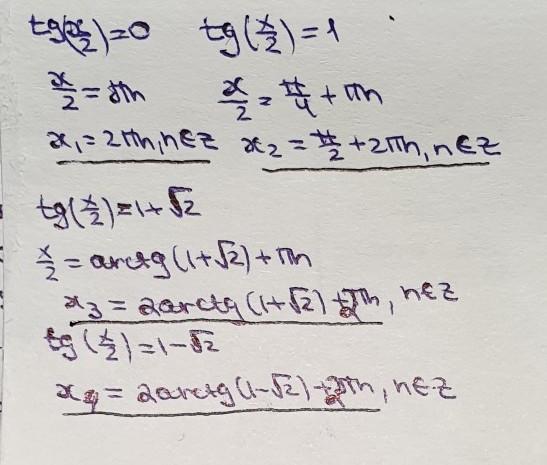 tg(x/2)=0 tg(x/2)=1
x/2=πn x/2=π/4+πn
x₁=2πn, n∈Z x₂=π/2+2πn, n∈Z
tg(x/2)=1+√2
x/2=arctg(1+√2)+πn
x₃=2arctg(1+√2)+2πn, n∈Z
tg(x/2)=1-√2
x₄=2arctg(1-√2)+2πn, n∈Z